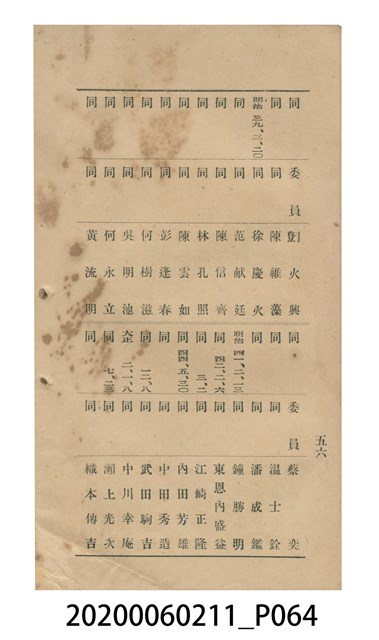 五六
同 委員 火興
同 同 陳維藻
明治 三九、二、二〇 同 徐慶火
同 同 范献廷
同 同 陳信齊
同 同 林孔照
同 同 陳雲如
同 同 彭逢春
同 同 何樹滋
同 同 吳明池
同 同 何永立
同 同 黃流明
同 委員 蔡奕
同 同 温士銓
同 同 潘成鑑
明治 四一、二、一三 同 鐘勝明
同 二、六 同 東恩內盛益
同 三、二 同 江崎正隆
同 四四、五、三〇 同 內田芳雄
同 同 中田秀造
同 一二、八 同 武田駒吉
大正 二、一、八 同 中川幸庵
同 七、二三 同 湘上光次
同 同 織本傳吉
20200060211_P064